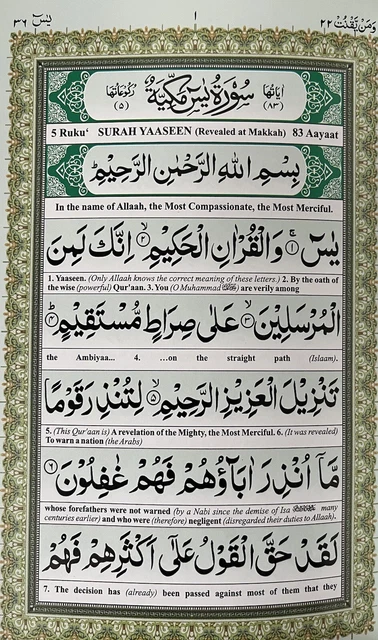 وَمَنْ يَّقْنُتُ ٢٢
١
يٰسٓ ٣٦
اٰيَاتُهَا (٨٣)
سُوْرَةُ يٰسٓ مَكِّيَّةٌ
رُكُوْعَاتُهَا (٥)
5 Ruku‘ SURAH YAASEEN (Revealed at Makkah) 83 Aayaat
بِسْمِ اللّٰهِ الرَّحْمٰنِ الرَّحِيْمِ
In the name of Allaah, the Most Compassionate, the Most Merciful.
يٰسٓ ۚ﴿١﴾ وَالْقُرْاٰنِ الْحَكِيْمِ ۙ﴿٢﴾ اِنَّكَ لَمِنَ
1. Yaaseen. (Only Allaah knows the correct meaning of these letters.) 2. By the oath of
the wise (powerful) Qur'aan. 3. You (O Muhammad ﷺ) are verily among
الْمُرْسَلِيْنَ ۙ﴿٣﴾ عَلٰى صِرَاطٍ مُّسْتَقِيْمٍ ؕ﴿٤﴾
the Ambiyaa... 4. ...on the straight path (Islaam).
تَنْزِيْلَ الْعَزِيْزِ الرَّحِيْمِ ۙ﴿٥﴾ لِتُنْذِرَ قَوْمًا
5. (This Qur'aan is) A revelation of the Mighty, the Most Merciful. 6. (It was revealed)
To warn a nation (the Arabs)
مَّاۤ اُنْذِرَ اٰبَآؤُهُمْ فَهُمْ غٰفِلُوْنَ ﴿٦﴾
whose forefathers were not warned (by a Nabi since the demise of Isa many
centuries earlier) and who were (therefore) negligent (disregarded their duties to Allaah).
لَقَدْ حَقَّ الْقَوْلُ عَلٰۤى اَكْثَرِهِمْ فَهُمْ
7. The decision has (already) been passed against most of them that they